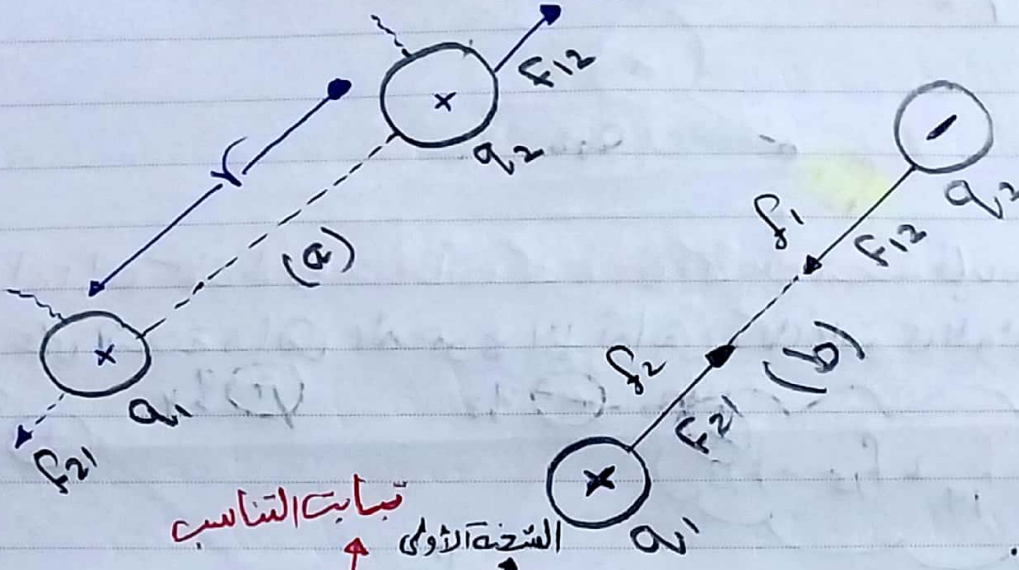 F12
×
q2
r
(a)
×
q1
F21
-
q2
f1
F12
(b)
f2
F21
×
q1
ثبابت التناسب
الشحنة الأولى